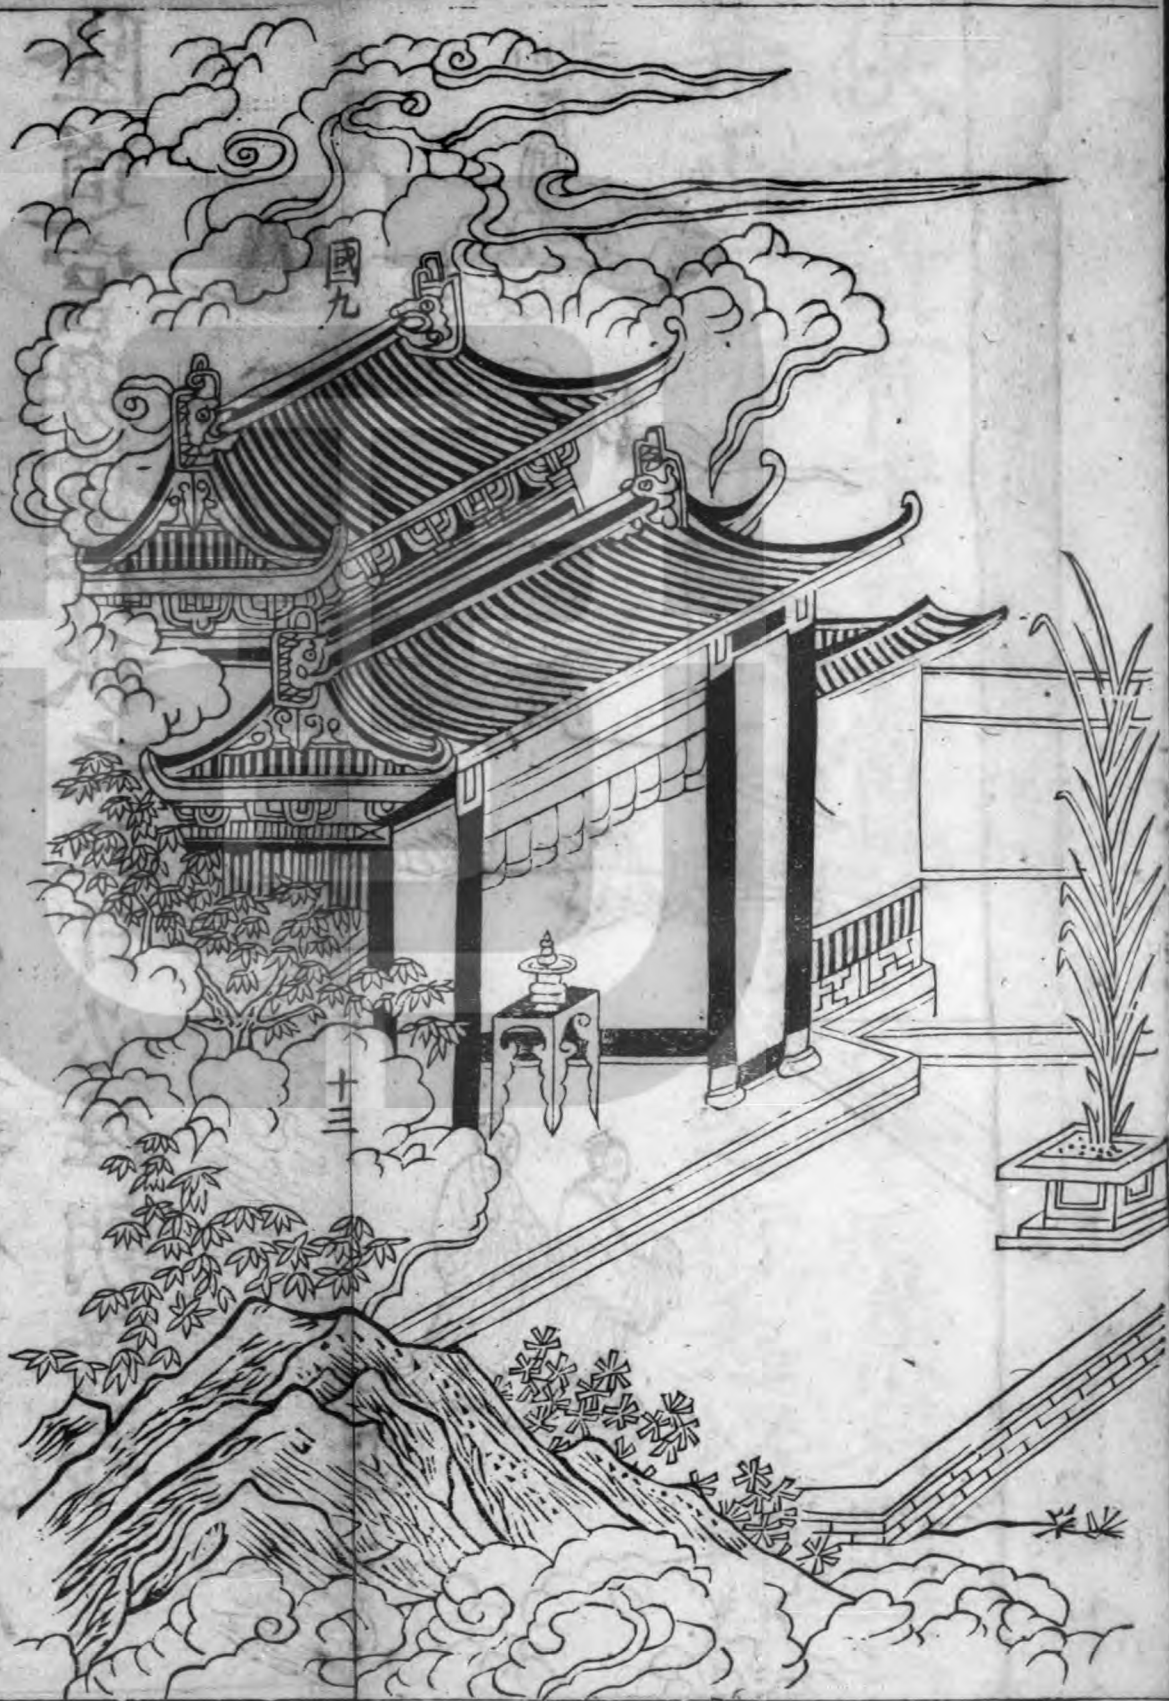 國九
十三